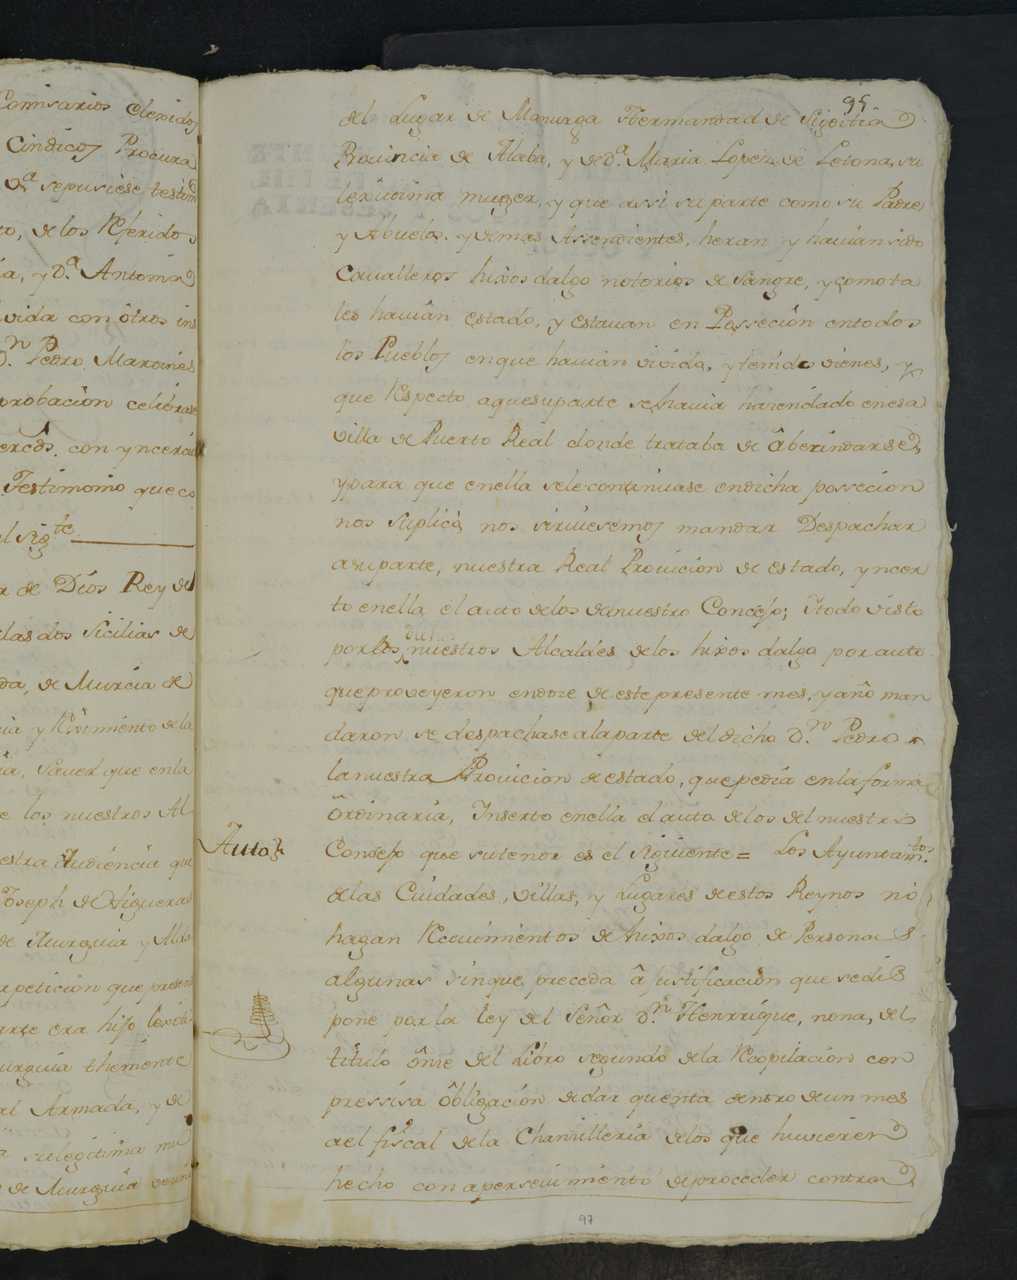 Comisarios elexidos
Cindicos Procura
Dª sepusiese testim
to, de los Referidos
ia, y Dª Antonia
vida con ôtros ins
Dn Pedro Martines
probacion celebrase
con ynserci
Testimonio que co
el sigte
de Dios Rey de
las dos Sicilias de
de Murcia de
cia y Rêximiento de la
Saved que en la
e los nuestros Al
estra Audiencia que
Joseph de Higueras
de Murguia y
petizion que presen
parte era hijo lexiti
urguia theniente
al Armada, y de
su legitima mu
de Murguia
95
del Lugar de Manurga Hermandad de Sigoitia
Prouincia de Alaba, y de Dª Maria Lopez de Letona, su
lexitima muger, y que assi su parte como su Padre
y Abuelos y demas Assendientes, heran y hauian sido
Cavalleros hixos dalgo notorios de sangre, y como ta
les hauian estado, y estauan en Posseción en todos
los Pueblos en que hauian vivido, y tenido vienes, y
que Respecto a que su parte se hauia hazendado en esa
villa de Puerto Real donde trataba de âbezindarse
y para que en ella se le continuase en dicha possecion
nos suplicó nos sirviesemos mandar Despachar
a su parte, nuestra Real Prouicion de estado, ynser
to en ella el auto de los de nuestro Consejo; Y todo visto
por los dichos nuestros Alcaldes de los hixos dalgo por auto
que proveyeron en doze de este presente mes, y año man
daron se despachase a la parte del dicho Dn Pedro
la nuestra Prouicion de estado, que pedia en la forma
ôrdinaria, Inserto en ella el auto de los del nuestro
Auto
Consejo que su tenor es el siguiente = Los Ayuntamtos
de las Ciudades, villas, y Lugares de estos Reynos no
hagan Reciuimientos de hixos dalgo de Personas
algunas sin que preceda â justificacion que se dis
pone por la ley del Señor Dn Henrrique, nona, del
titulo ônze del Libro segundo de la Recopilacion con
pressisa ôbligación de dar quenta dentro de un mes
al fiscal de la Chansilleria de los que huuieren
hecho con aperseuimiento de proceder contra
97